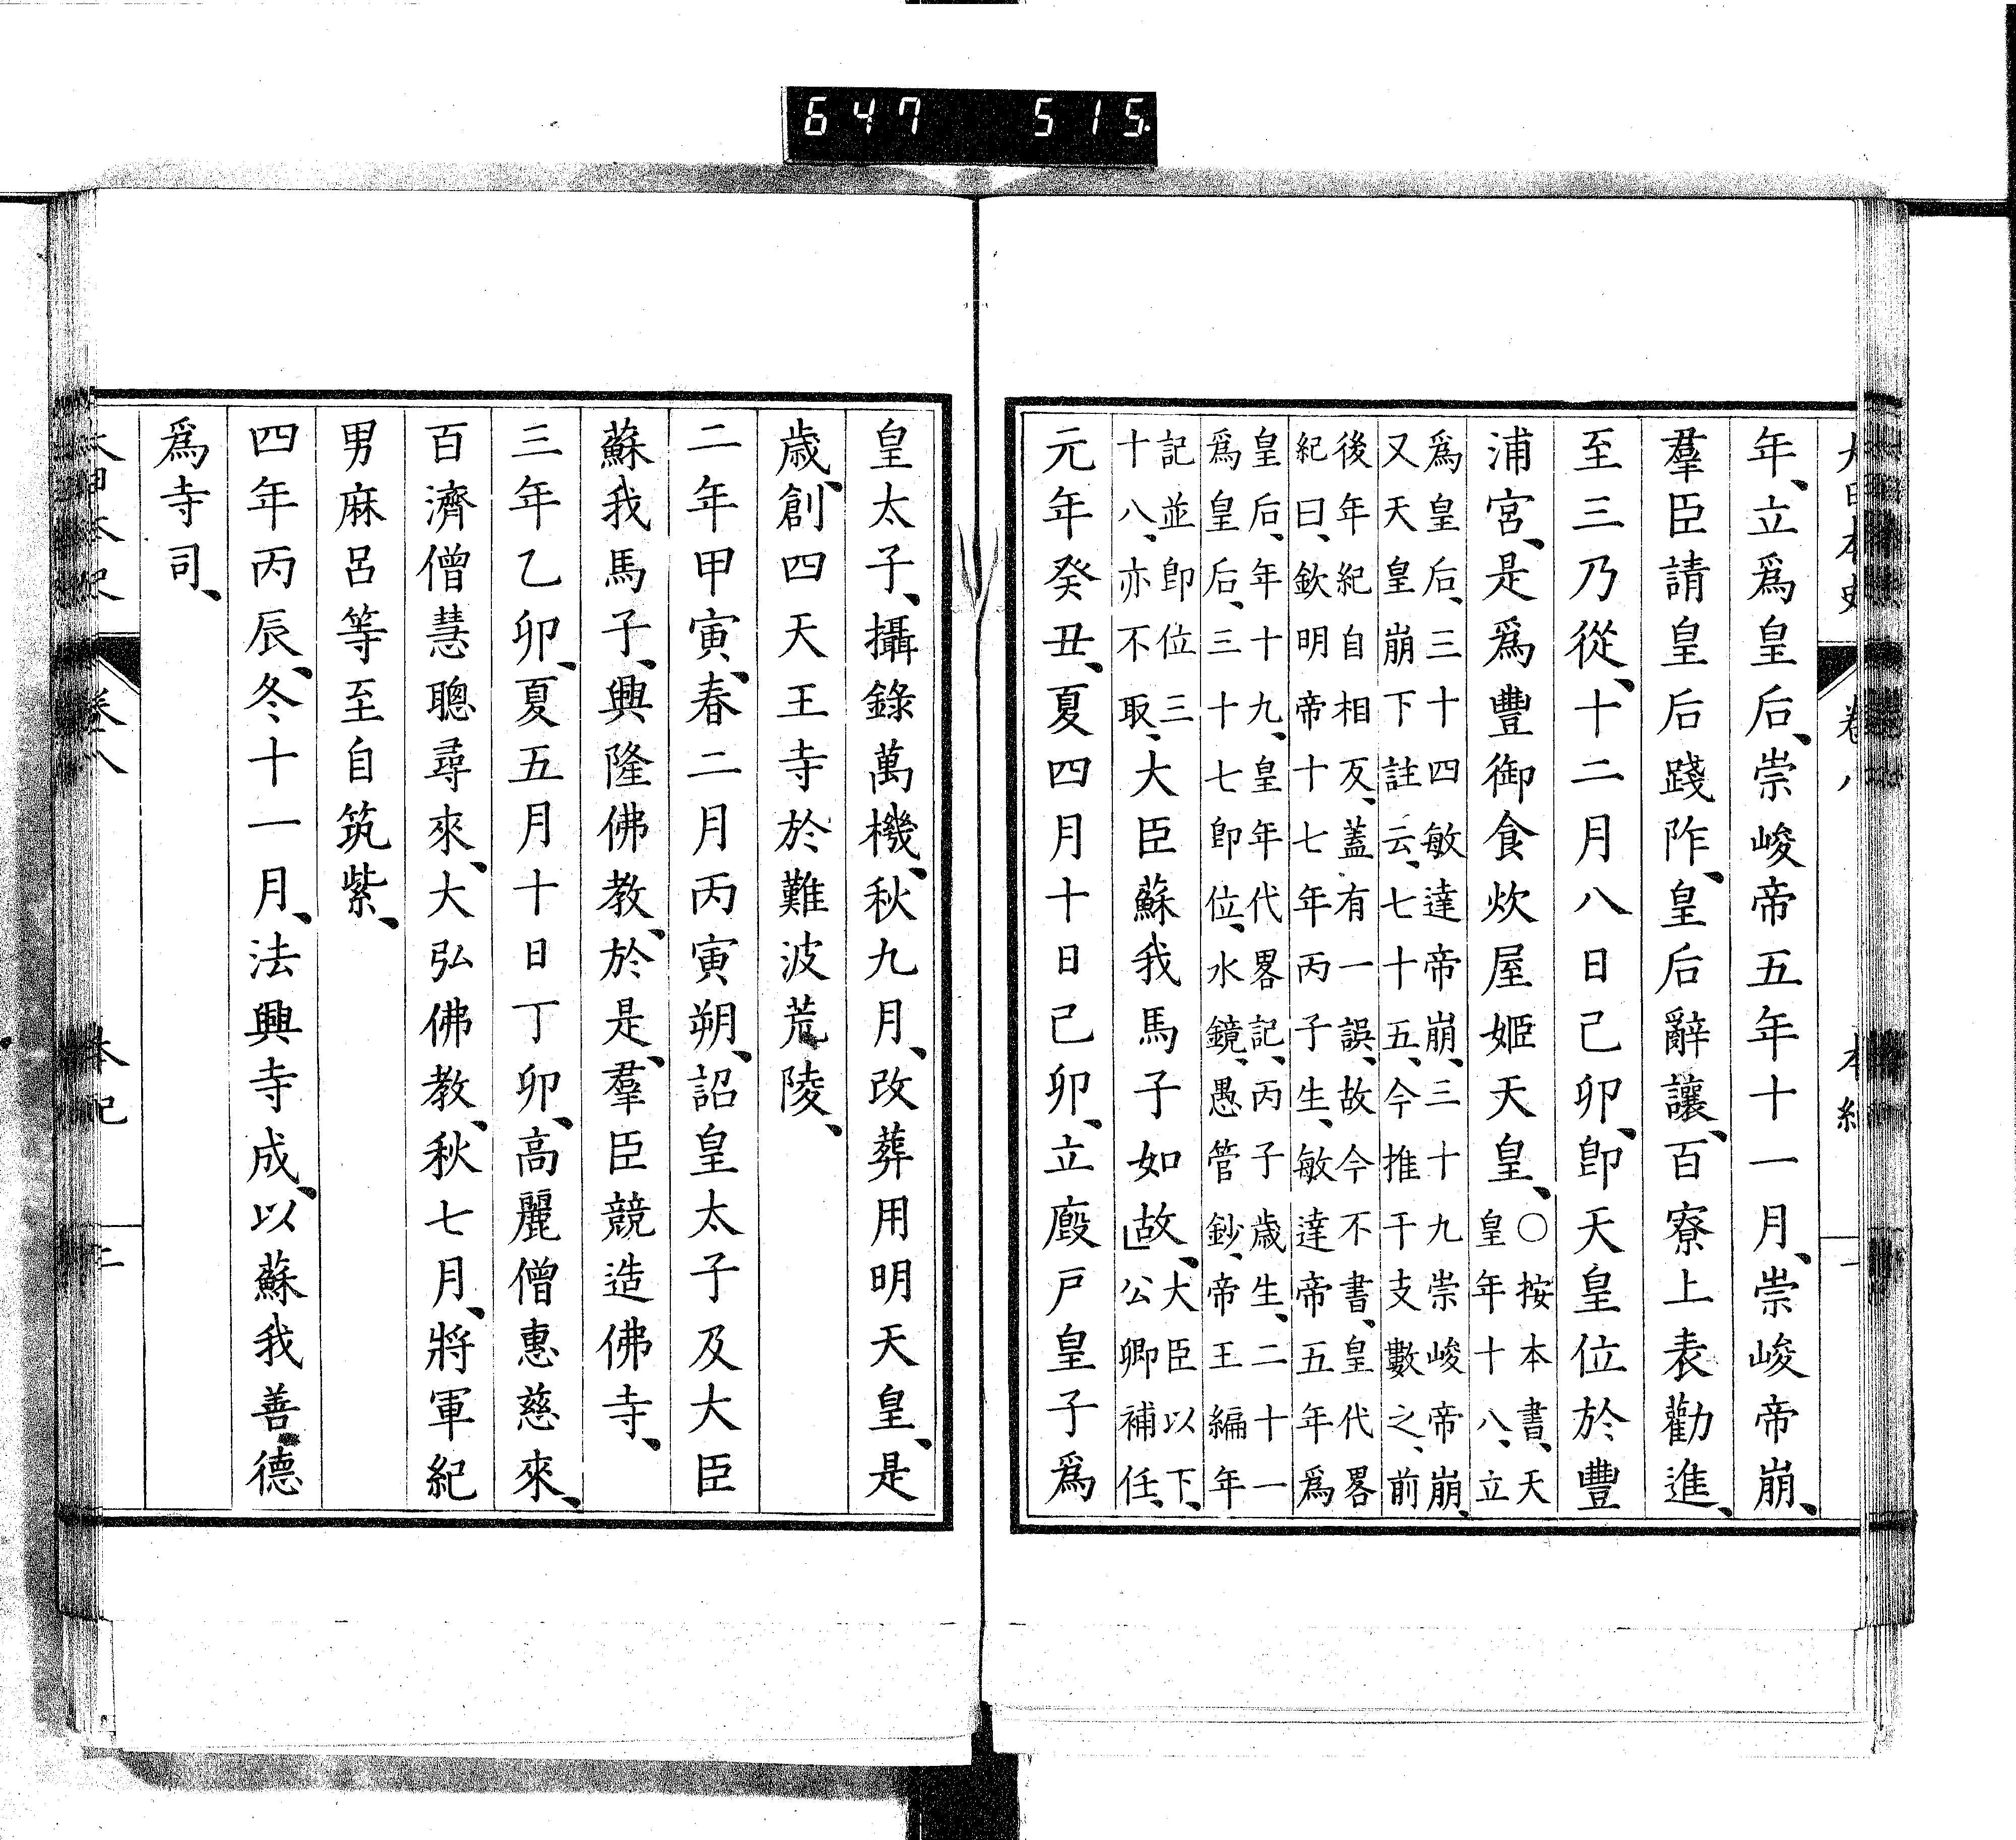 大日本史 卷八 本紀 一
年、立爲皇后、崇峻帝五年十一月、崇峻帝崩、
羣臣請皇后踐阼、皇后辭讓、百寮上表勸進、
至三乃從、十二月八日己卯、卽天皇位於豐
浦宮、是爲豐御食炊屋姬天皇、○按本書、天
皇年十八、立
爲皇后、三十四敏達帝崩、三十九崇峻帝崩、
又天皇崩下註云、七十五、今推干支數之、前
後年紀自相反、蓋有一誤、故今不書、皇代畧
紀曰、欽明帝十七年丙子生、敏達帝五年爲
皇后、年十九、皇年代畧記、丙子歳生、二十一
爲皇后、三十七卽位、水鏡、愚管鈔、帝王編年
記並卽位三
十八、亦不取、大臣蘇我馬子如故、」大臣以下、
公卿補任、
元年癸丑、夏四月十日己卯、立廏戸皇子爲
皇太子、攝錄萬機、秋九月、改葬用明天皇、是
歳、創四天王寺於難波荒陵、
二年甲寅、春二月丙寅朔、詔皇太子及大臣
蘇我馬子、興隆佛教、於是、羣臣競造佛寺、
三年乙卯、夏五月十日丁卯、高麗僧惠慈來、
百濟僧慧聰尋來、大弘佛教、秋七月、將軍紀
男麻呂等至自筑紫、
四年丙辰、冬十一月、法興寺成、以蘇我善德
爲寺司、
卷八 本紀